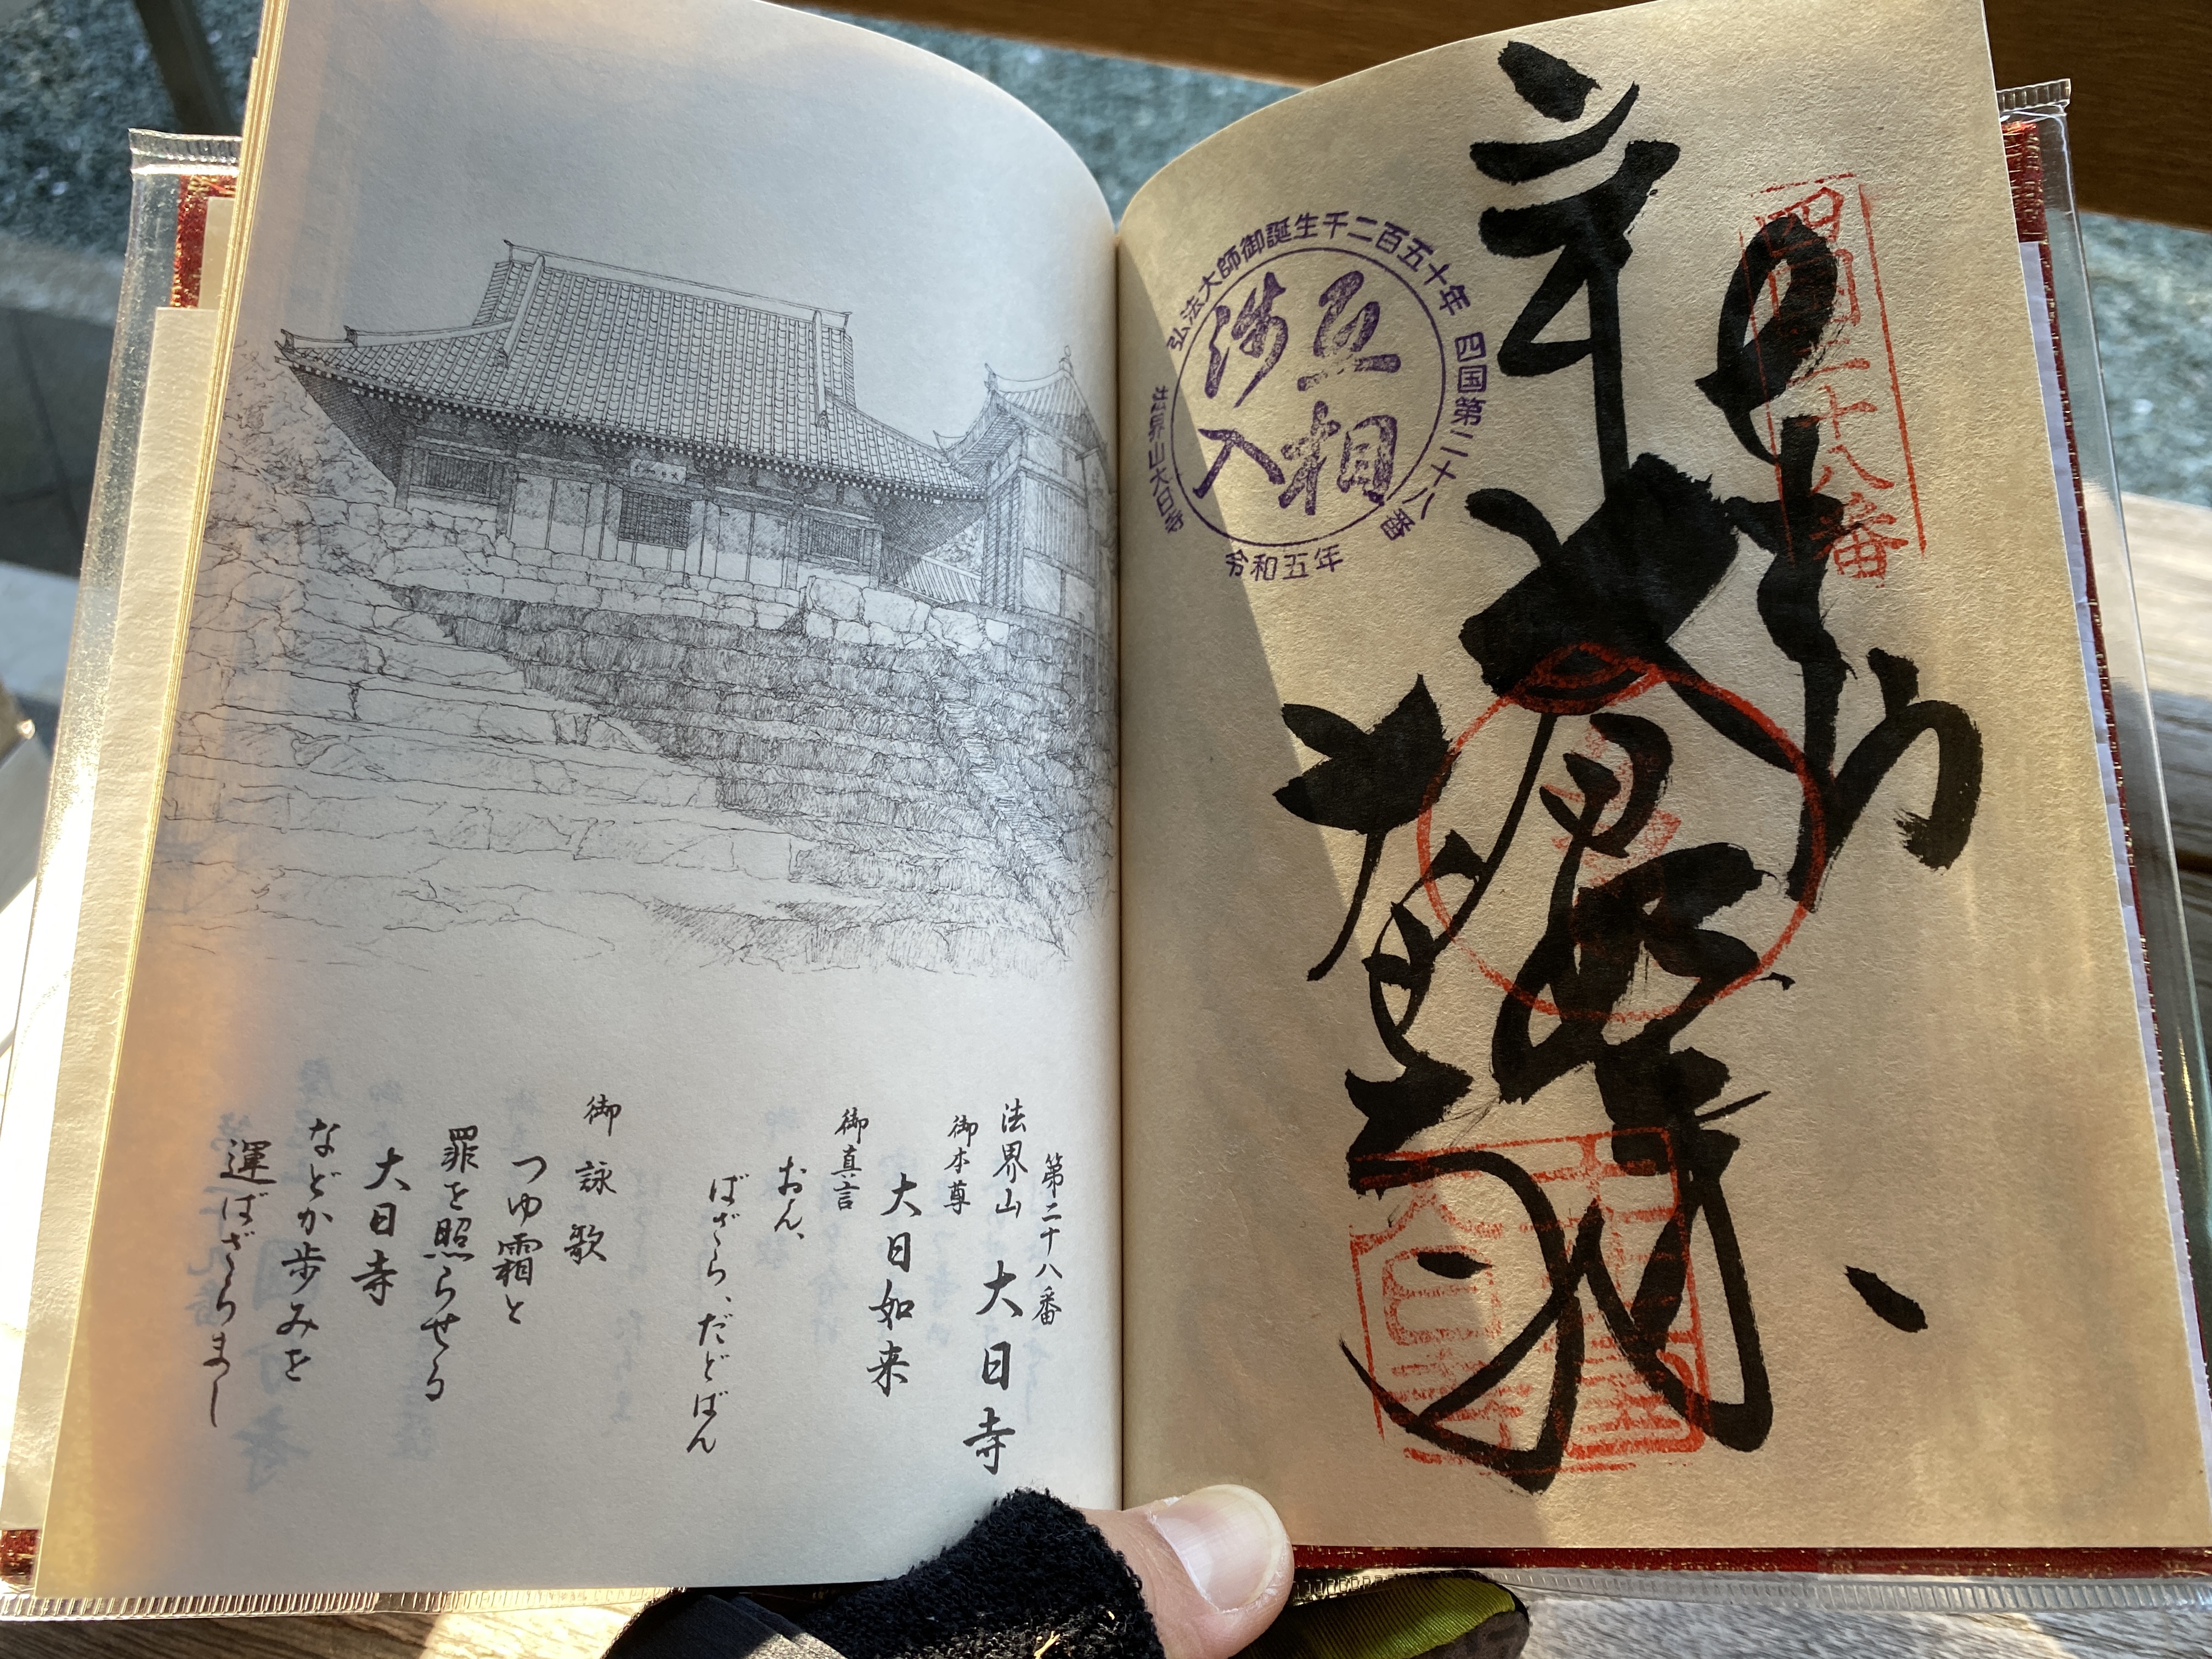 四国二十八番
奉
弘法大師御誕生千二百五十年
四国第二十八番
法界山大日寺
令和五年
互相
渉入
第二十八番
法界山 大日寺
御本尊
大日如来
御真言
おん、
ばざら、だどばん
御詠歌
つゆ霜と
罪を照らせる
大日寺
などか歩みを
運ばざらまし